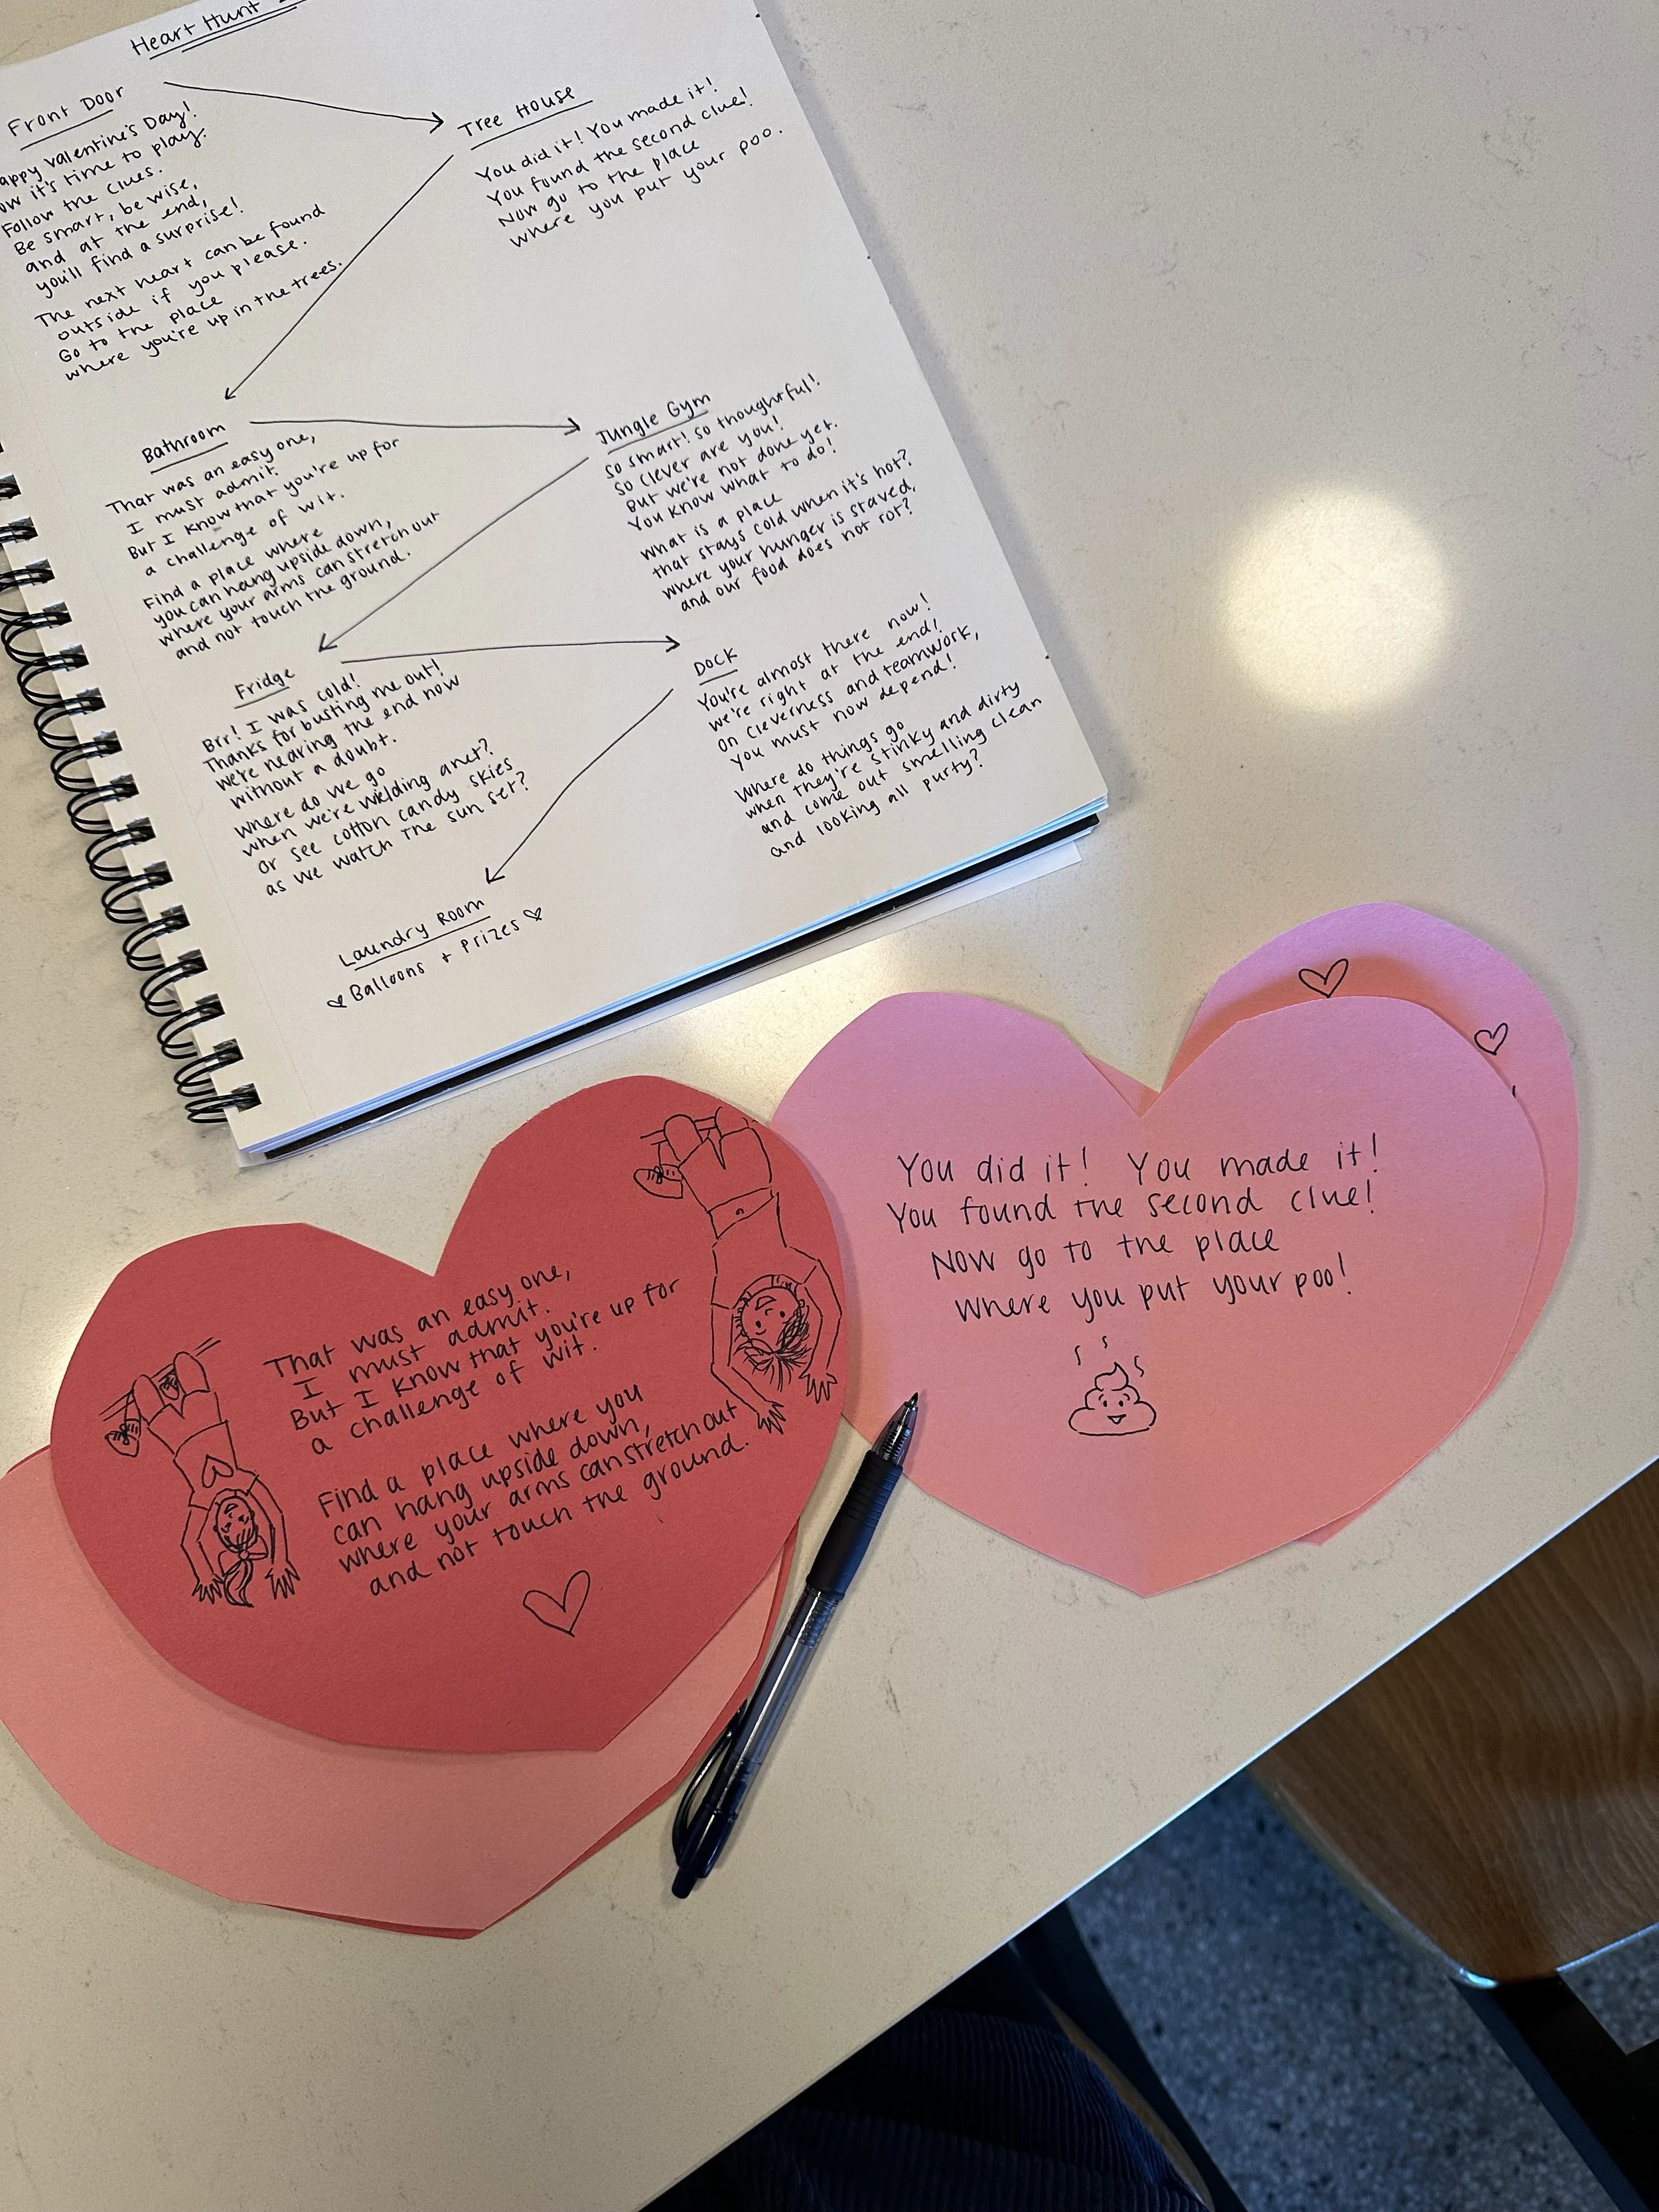 Heart Hunt
Front Door
appy Valentine's Day!
ow it's time to play.
Follow the clues.
Be smart, be wise,
and at the end,
you'll find a surprise!
The next heart can be found
outside if you please.
Go to the place
where you're up in the trees.
Tree House
You did it! You made it!
You found the second clue!
Now go to the place
where you put your poo.
Bathroom
That was an easy one,
I must admit.
But I know that you're up for
a challenge of wit.
Find a place where
you can hang upside down,
where your arms can stretch out
and not touch the ground.
Jungle Gym
So smart! So thoughtful!
So clever are you!
But we're not done yet.
You know what to do!
What is a place
that stays cold when it's hot?
where your hunger is staved,
and our food does not rot?
Fridge
Brr! I was cold!
Thanks for busting me out!
we're nearing the end now
without a doubt.
where do we go
when we're wielding a net?
Or see cotton candy skies
as we watch the sun set?
Dock
You're almost there now!
we're right at the end!
On cleverness and teamwork,
You must now depend!
Where do things go
when they're stinky and dirty
and come out smelling clean
and looking all purty?
Laundry Room
Balloons + Prizes
That was an easy one,
I must admit.
But I know that you're up for
a challenge of wit.
Find a place where you
can hang upside down,
where your arms can stretch out
and not touch the ground.
You did it! You made it!
You found the second clue!
Now go to the place
where you put your poo!